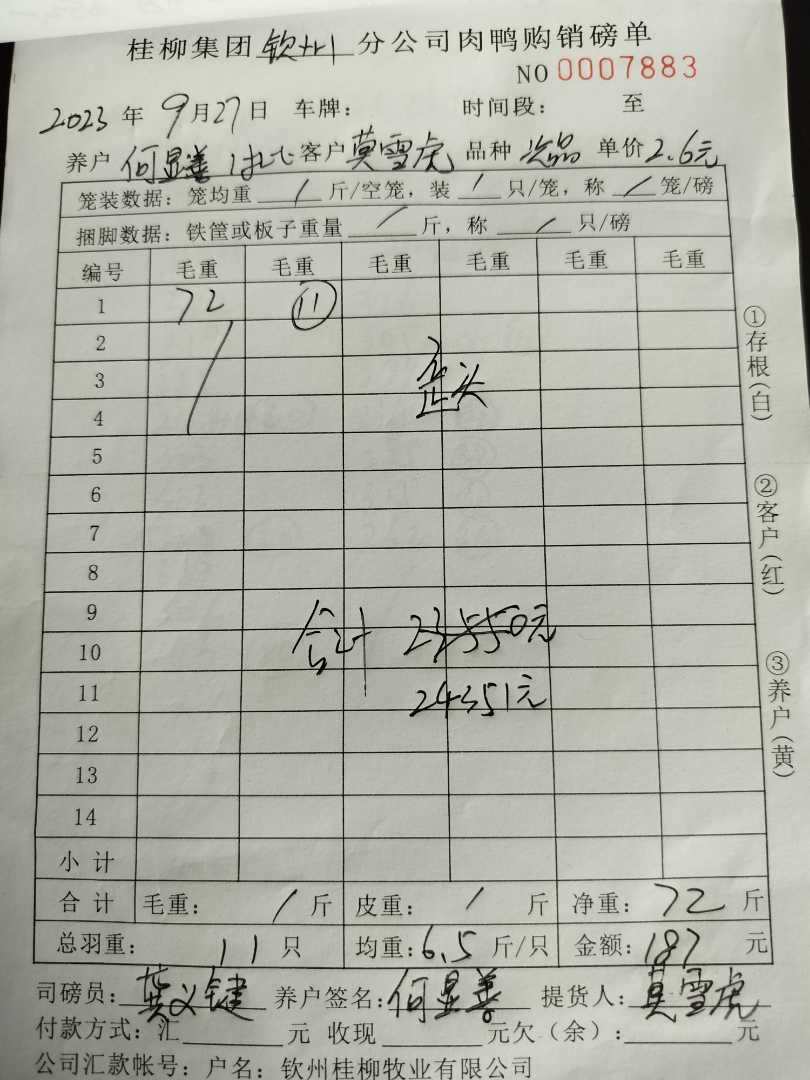 桂柳集团钦州分公司肉鸭购销磅单
NO 0007883
2023年9月27日 车牌： 时间段： 至
养户 何显善 客户 莫雪虎 品种 次品 单价 2.6元
笼装数据：笼均重 / 斤/空笼，装 / 只/笼，称 / 笼/磅
捆脚数据：铁筐或板子重量 / 斤，称 / 只/磅
编号 毛重 毛重 毛重 毛重 毛重 毛重
1 72 ⑪
2
3 歪头
4
5
6
7
8
9
合计 23550元
10
11 24351元
12
13
14
小计
合计 毛重： / 斤 皮重： / 斤 净重：72斤
总羽重：11只 均重：6.5斤/只 金额：187元
司磅员： 养户签名：何显善 提货人：莫雪虎
付款方式：汇 元 收现 元欠（余）： 元
公司汇款帐号：户名：钦州桂柳牧业有限公司
①存根(白)
②客户(红)
③养户(黄)